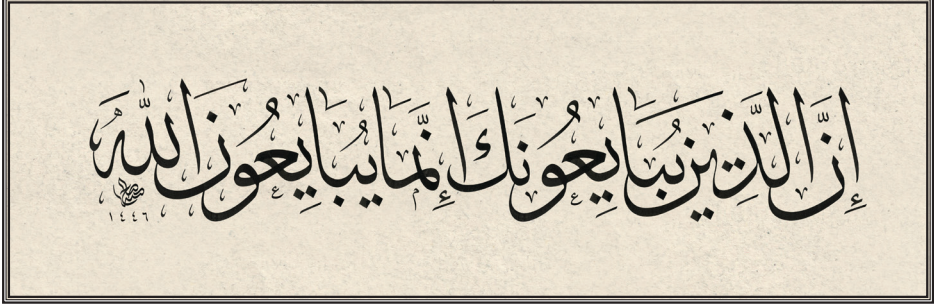 إِنَّ الَّذِينَ يُبَايِعُونَكَ إِنَّمَا يُبَايِعُونَ اللَّهَ
١٤٤٦